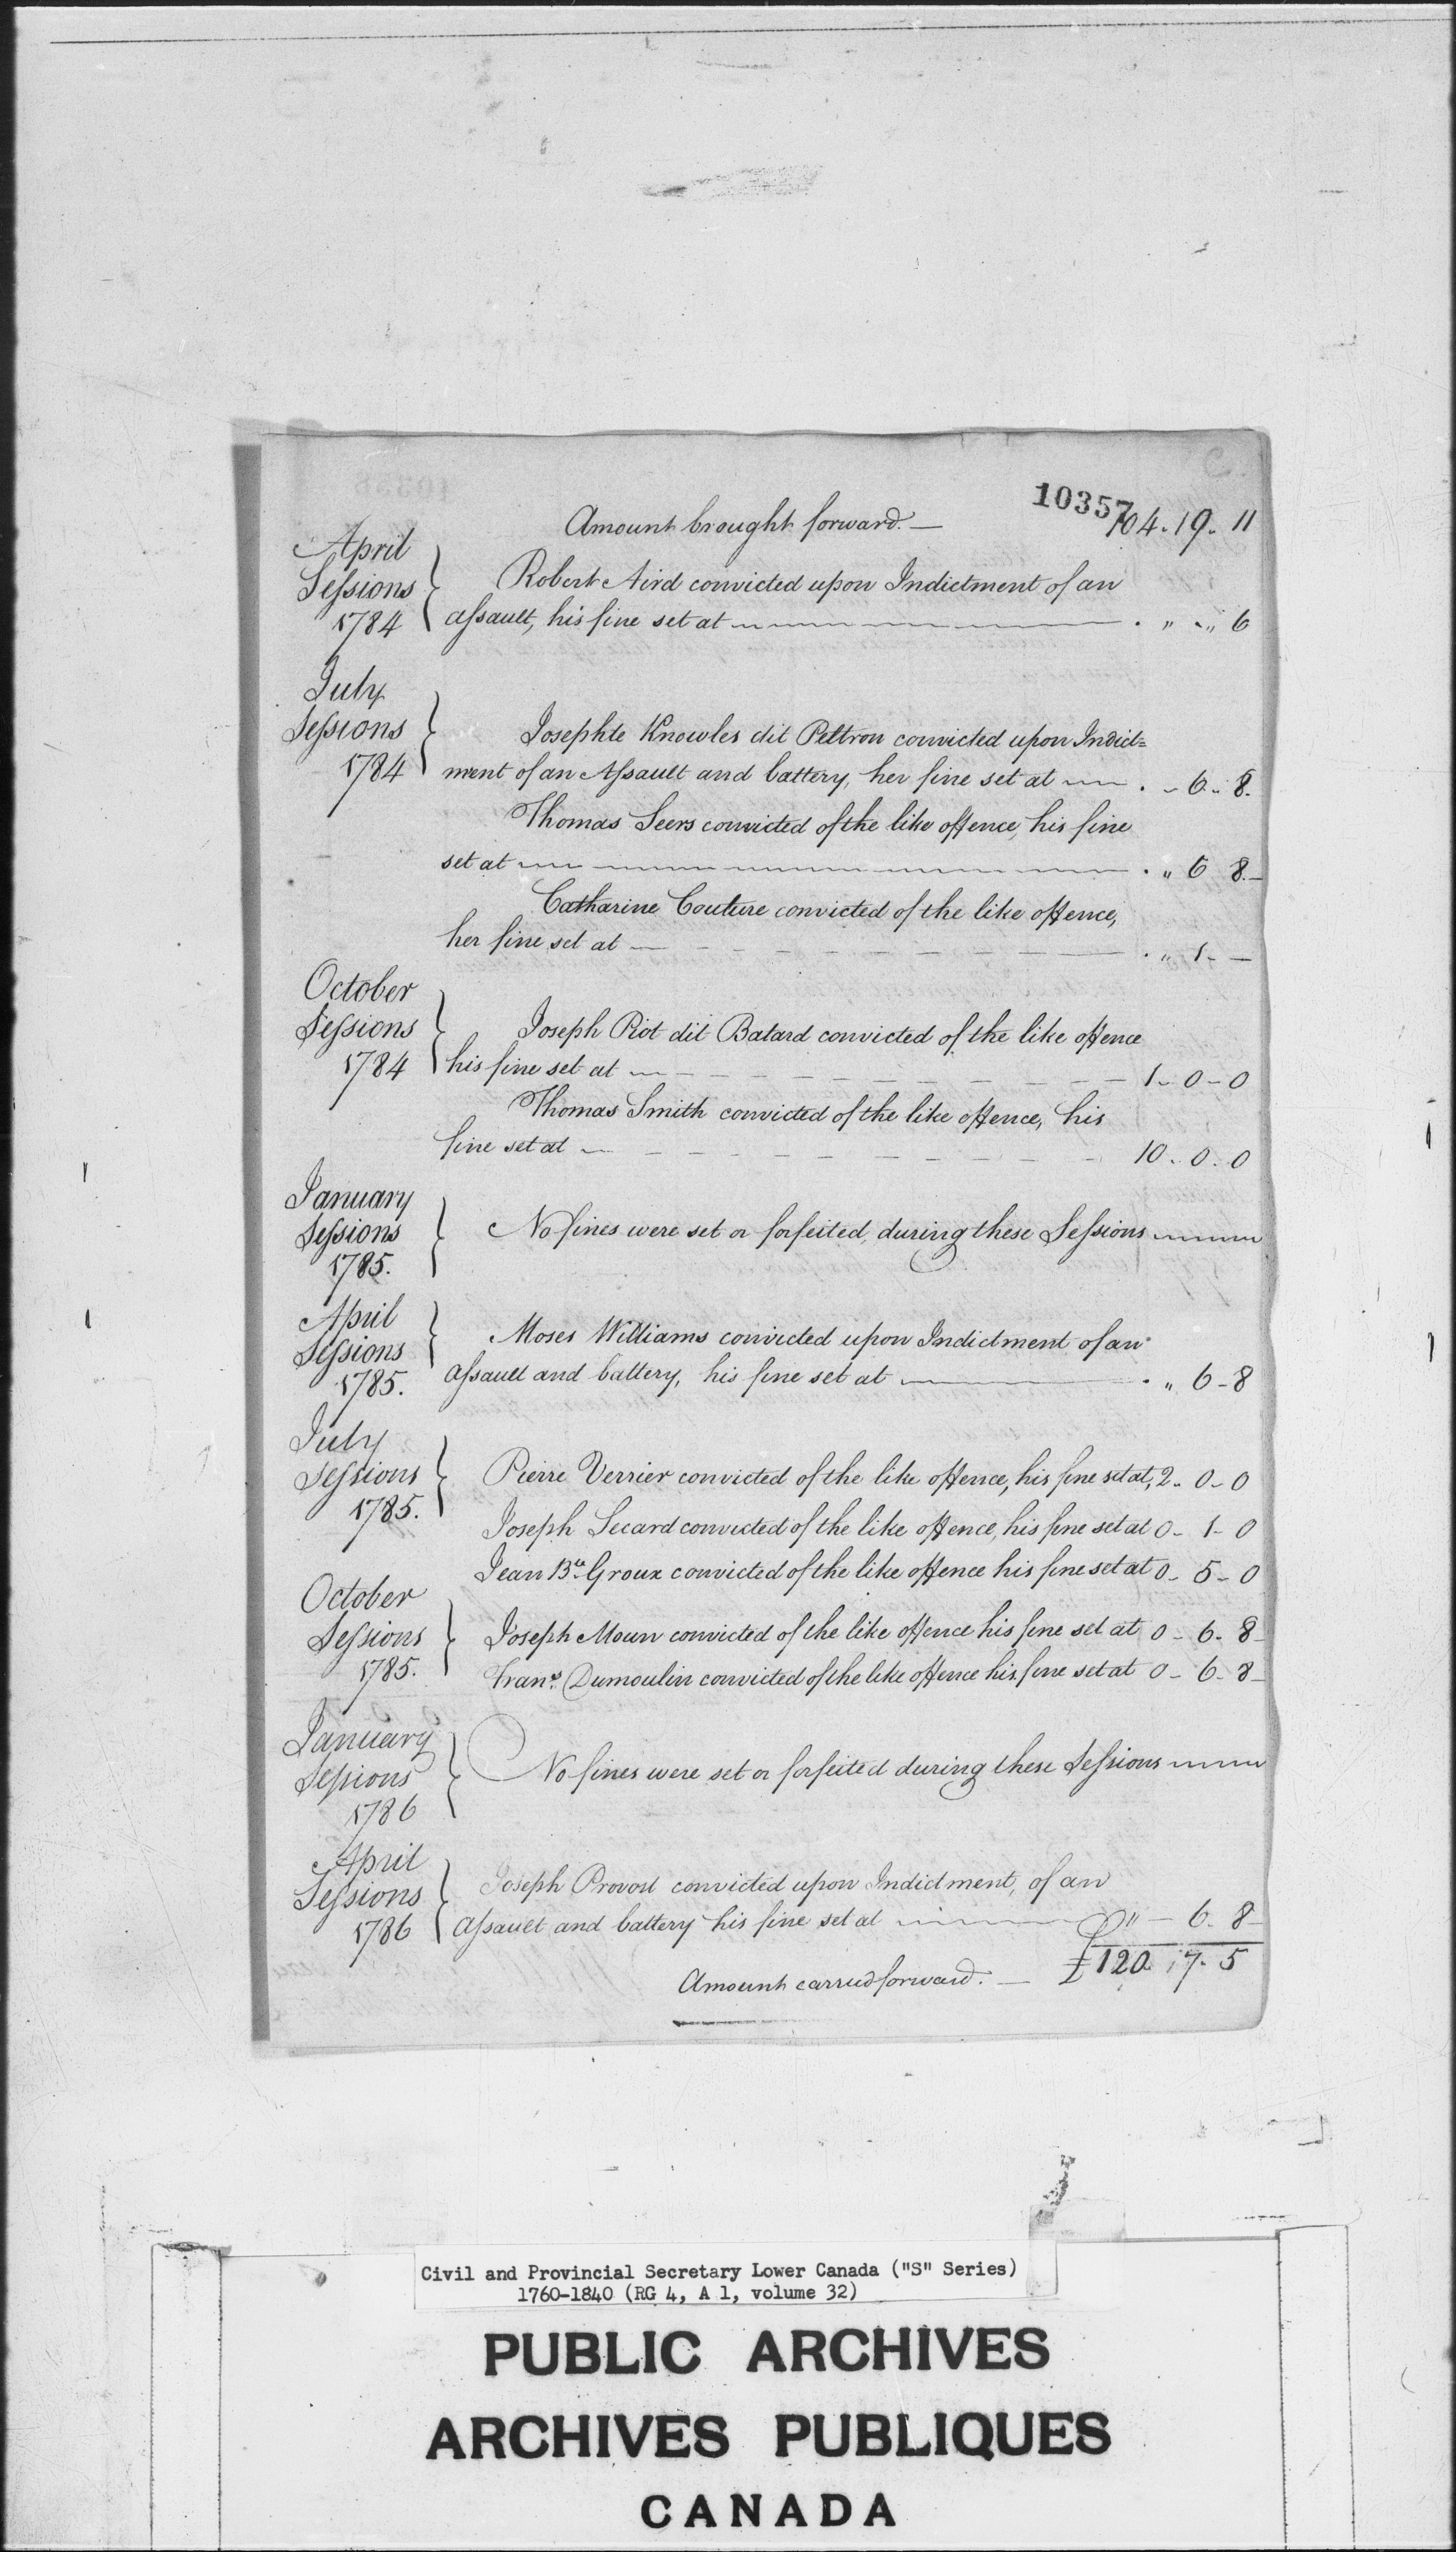 10357
Amount brought forward. — 104. 19. 11
April
Sessions
1784
Robert Aird convicted upon Indictment of an
assault, his fine set at — . " . " 6
July
Sessions
1784
Josephte Knowles dit Peltron convicted upon Indict=
ment of an Assault and battery, her fine set at — . - 6. 8.
Thomas Seers convicted of the like offence, his fine
set at — . " 6 8. —
Catharine Couture convicted of the like offence,
her fine set at — . " 1 - —
October
Sessions
1784
Joseph Riot dit Batard convicted of the like offence
his fine set at — 1 - 0 - 0
Thomas Smith convicted of the like offence, his
fine set at — 10. 0. 0
January
Sessions
1785.
No fines were set or forfeited, during these Sessions
April
Sessions
1785.
Moses Williams convicted upon Indictment of an
assault and battery, his fine set at — . " 6 - 8
July
Sessions
1785.
Pierre Verrier convicted of the like offence, his fine set at, 2. 0 - 0
Joseph Secard convicted of the like offence, his fine set at 0 - 1 - 0
Jean Bte. Groux convicted of the like offence his fine set at 0 - 5 - 0
October
Sessions
1785.
Joseph Moun convicted of the like offence his fine set at 0 - 6 - 8 -
Frans. Dumoulin convicted of the like offence his fine set at 0 - 6 - 8 -
January
Sessions
1786
No fines were set or forfeited during these Sessions
April
Sessions
1786
Joseph Provost convicted upon Indictment, of an
assault and battery his fine set at — " — 6. 8 -
Amount carried forward. — £120. 17. 5
Civil and Provincial Secretary Lower Canada ("S" Series)
1760-1840 (RG 4, A 1, volume 32)
PUBLIC ARCHIVES
ARCHIVES PUBLIQUES
CANADA